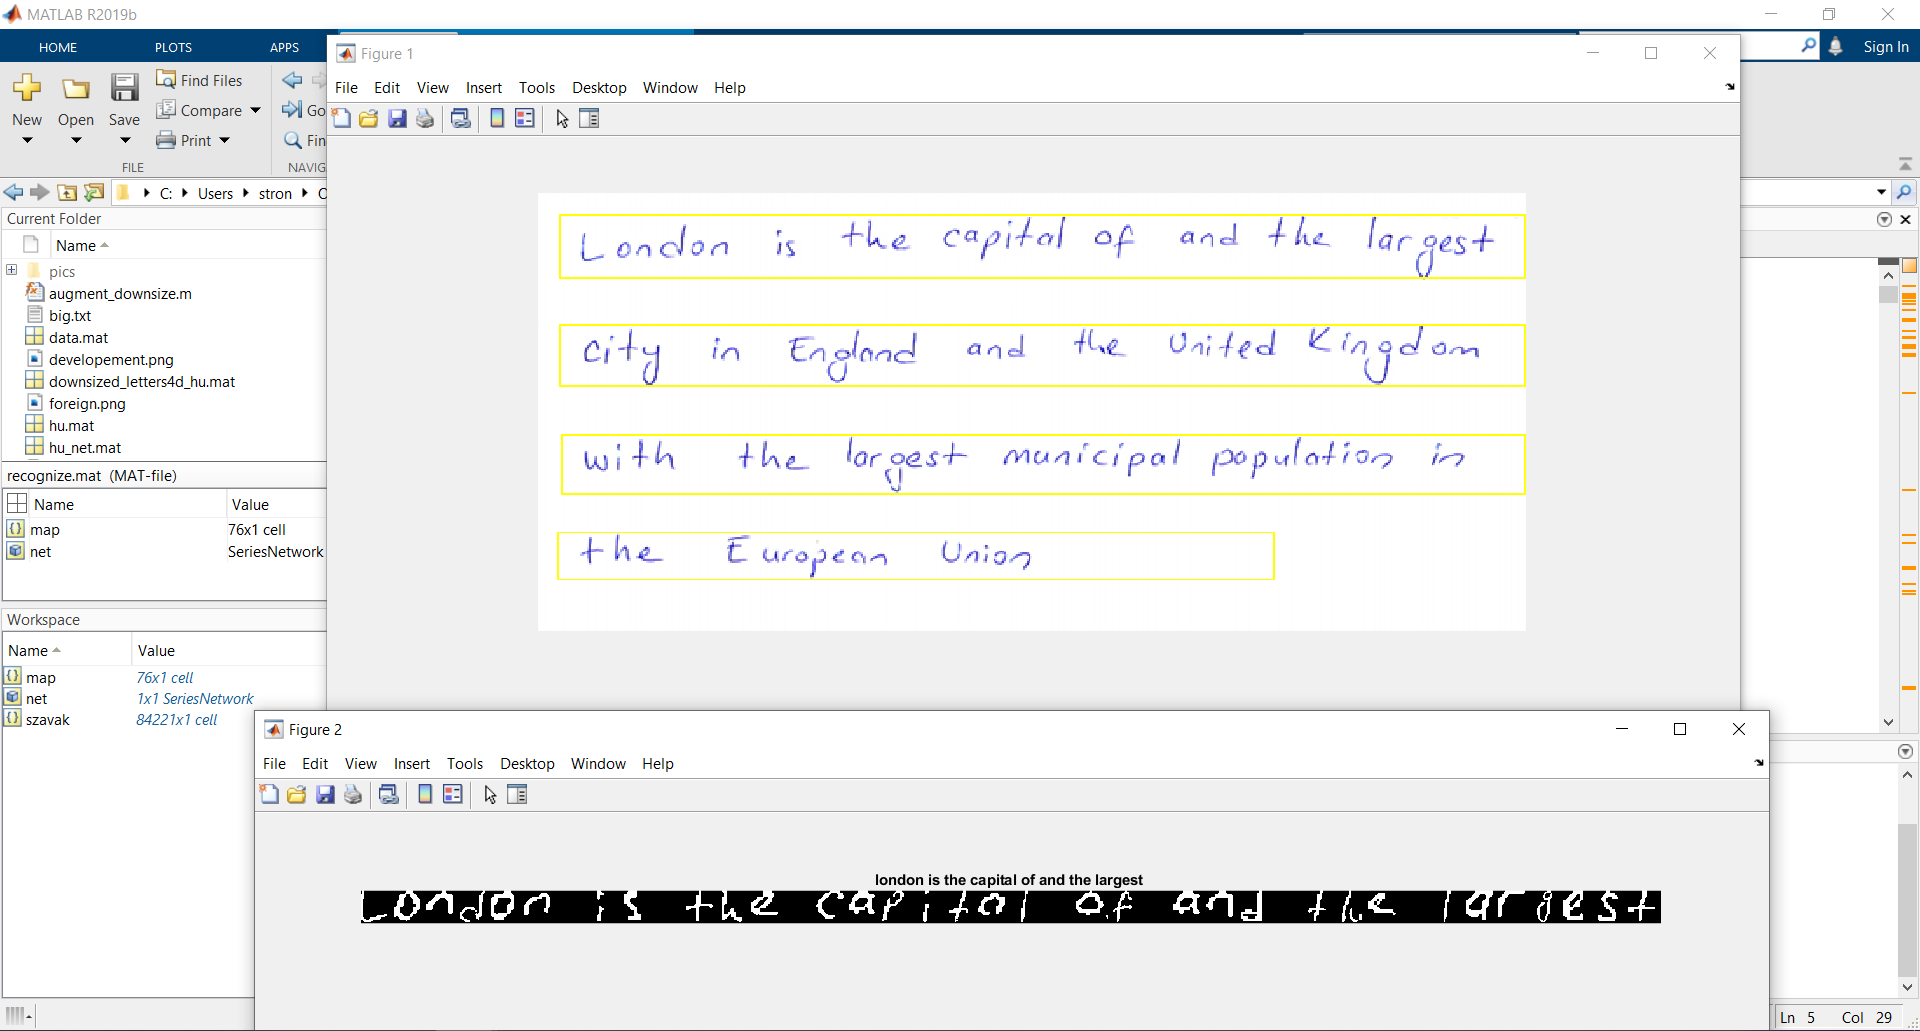 MATLAB R2019b
HOME PLOTS APPS
Sign In
New
Open
Save
Find Files
Compare
Print
FILE
Go
Fin
NAVIG
C: Users stron O
Current Folder
Name
pics
augment_downsize.m
big.txt
data.mat
developement.png
downsized_letters4d_hu.mat
foreign.png
hu.mat
hu_net.mat
recognize.mat (MAT-file)
Name Value
map 76x1 cell
net SeriesNetwork
Workspace
Name Value
map 76x1 cell
net 1x1 SeriesNetwork
szavak 84221x1 cell
Figure 1
File Edit View Insert Tools Desktop Window Help
London is the capital of and the largest
city in England and the United Kingdom
with the largest municipal population in
the European Union
Figure 2
File Edit View Insert Tools Desktop Window Help
london is the capital of and the largest
London is the capital of and the largest
Ln 5 Col 29